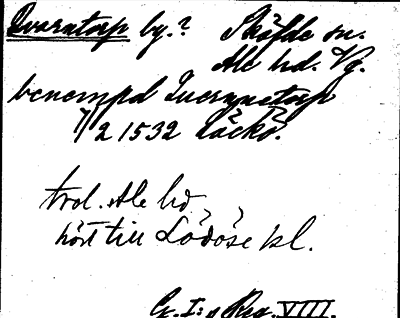 Quarntorp by.? Sköfde sn.
Ale hd. Vg.
benempd Quernnetorp
7/2 1532 Läckö.
trol. Ale hd
hört till Lödöse kl.
G. I:s Reg. VIII.